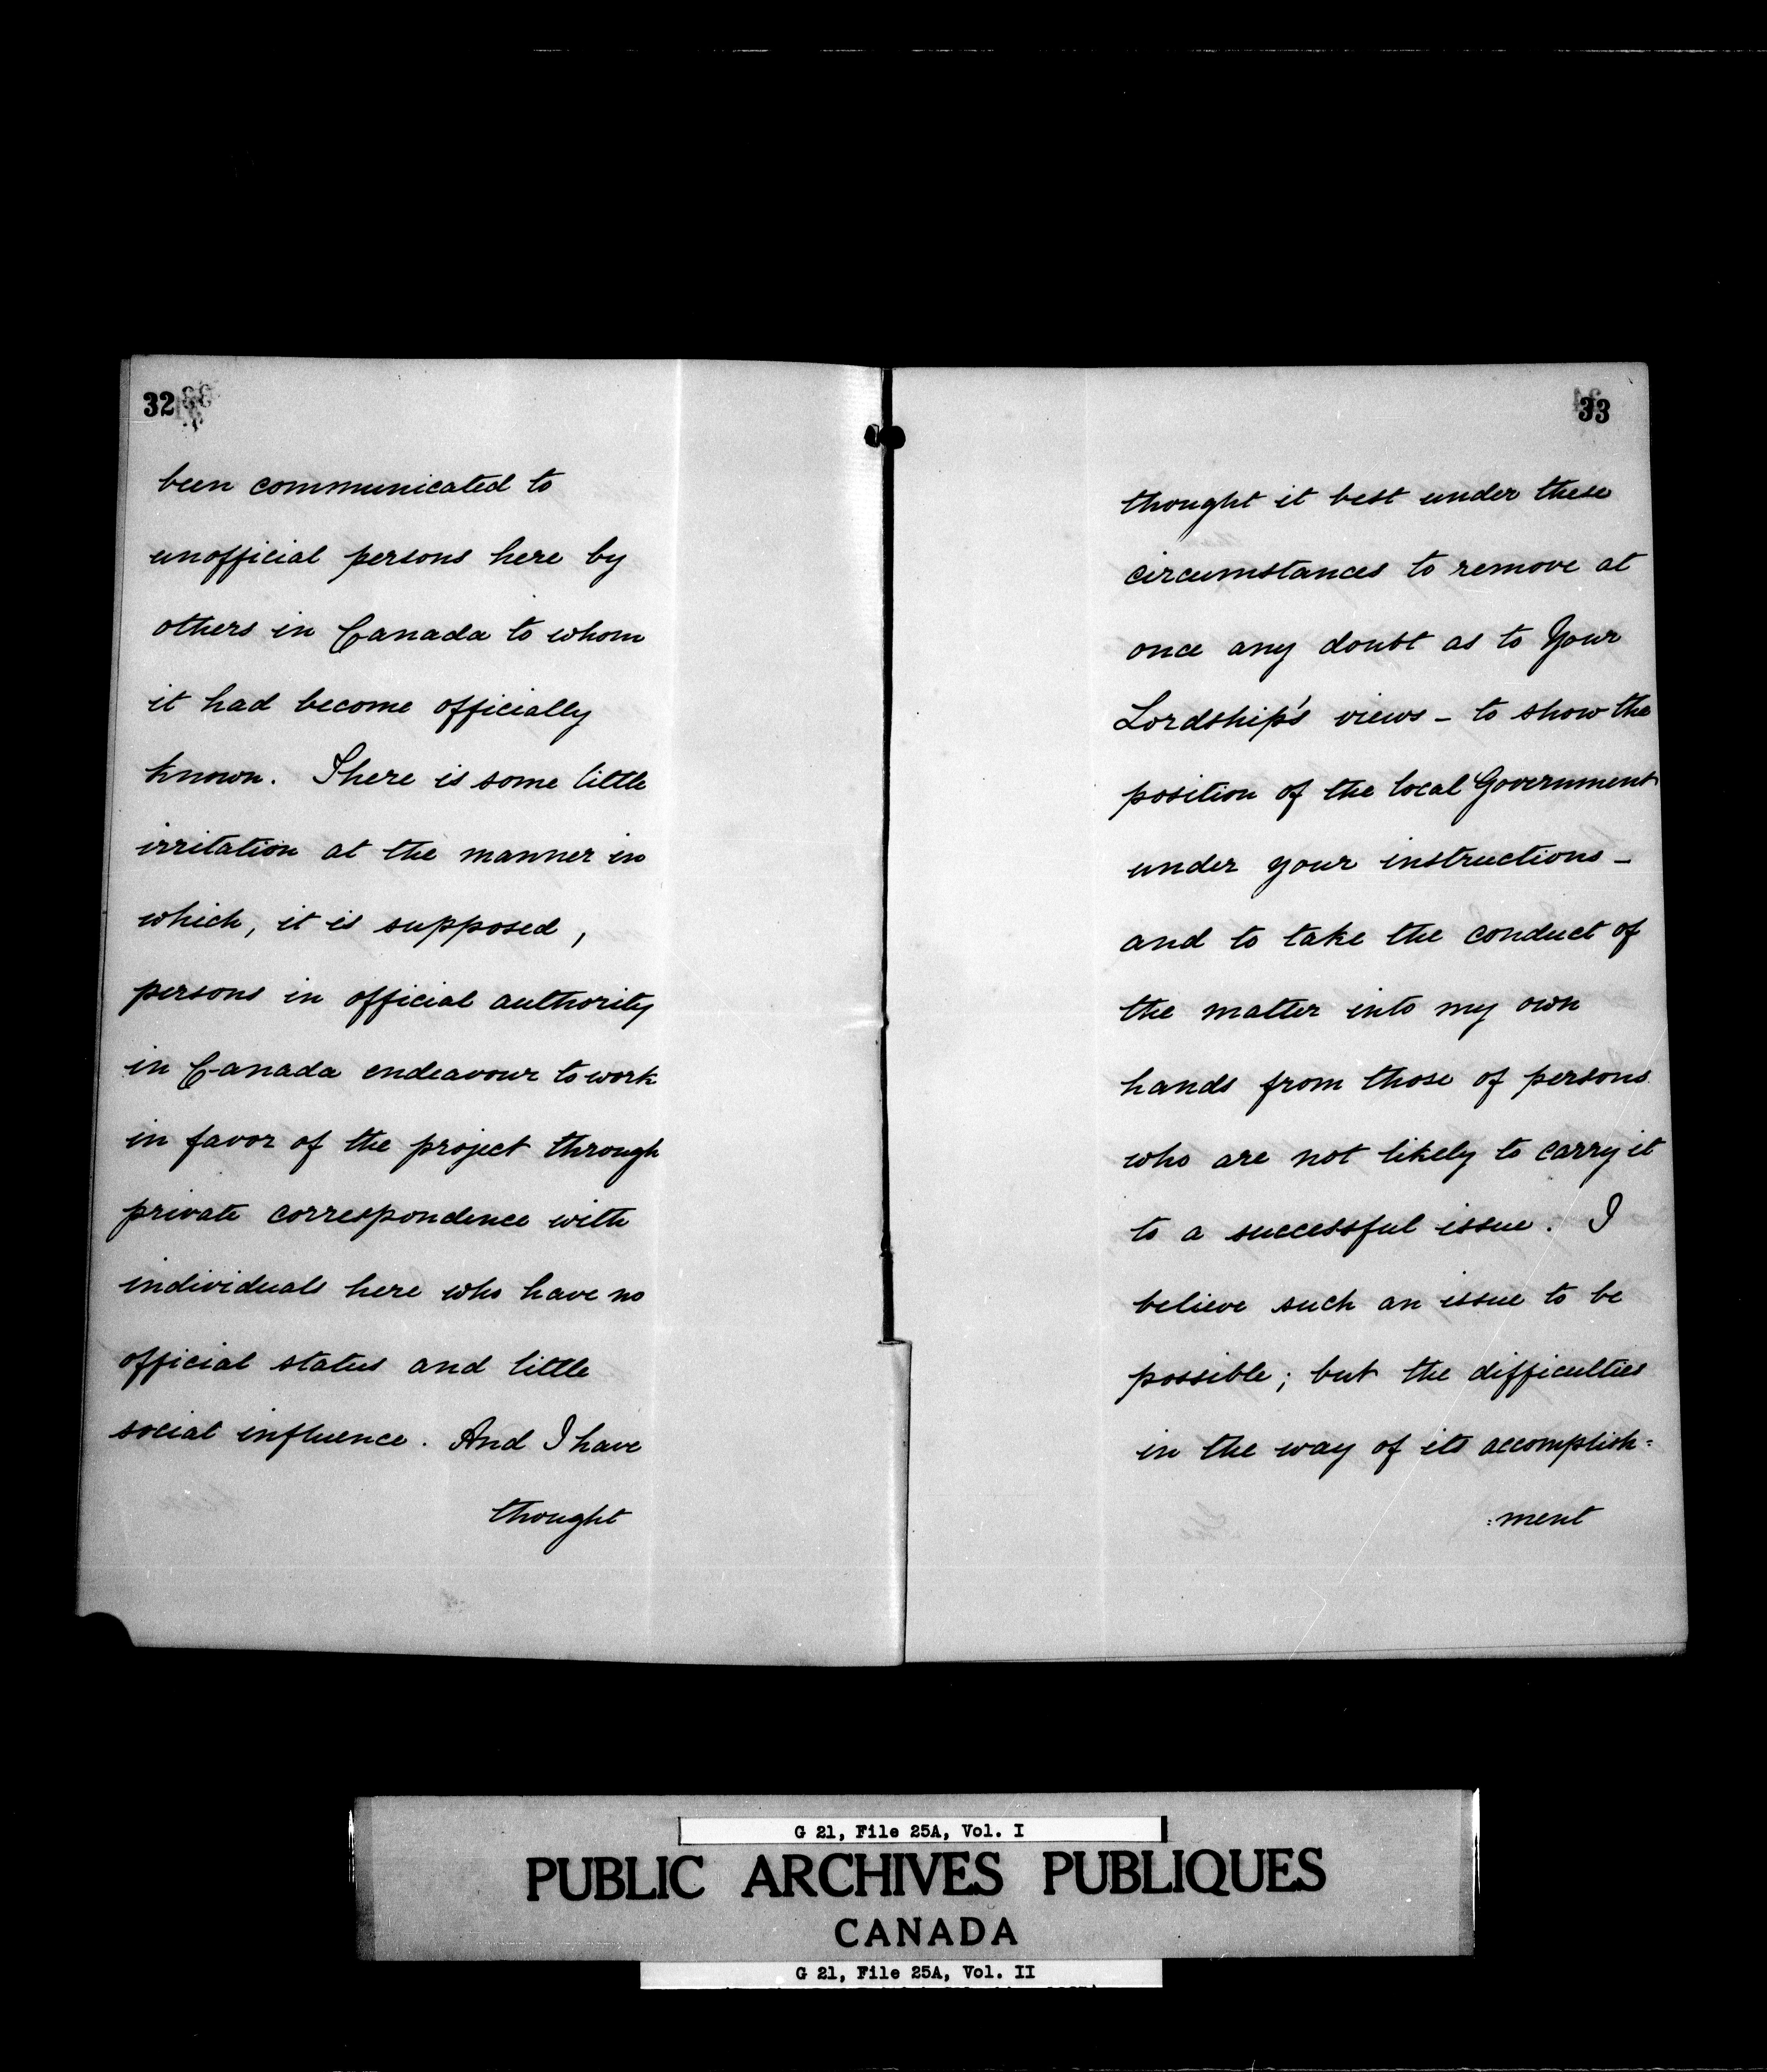 32
been communicated to
unofficial persons here by
others in Canada to whom
it had become officially
known. There is some little
irritation at the manner in
which, it is supposed,
persons in official authority
in Canada endeavour to work
in favor of the project through
private correspondence with
individuals here who have no
official status and little
social influence. And I have
thought
33
thought it best under these
circumstances to remove at
once any doubt as to Your
Lordship's views - to show the
position of the local Government
under your instructions -
and to take the conduct of
the matter into my own
hands from those of persons
who are not likely to carry it
to a successful issue. I
believe such an issue to be
possible; but the difficulties
in the way of its accomplish=
=ment
G 21, File 25A, Vol. I
PUBLIC ARCHIVES PUBLIQUES
CANADA
G 21, File 25A, Vol. II